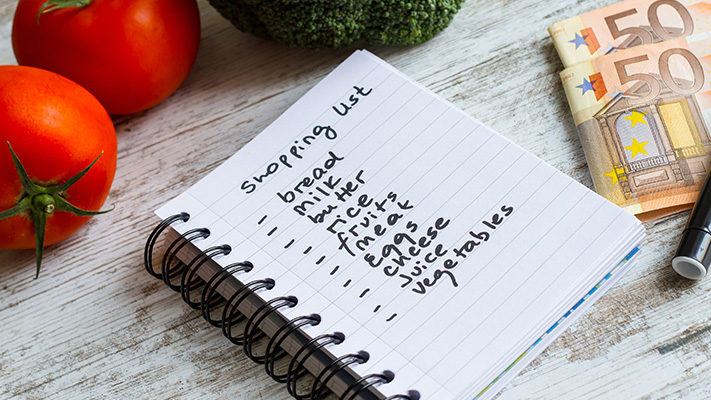 shopping list
- bread
- milk
- butter
- rice
- fruits
- meat
- Eggs
- cheese
- Juice
- vegetables
50
50